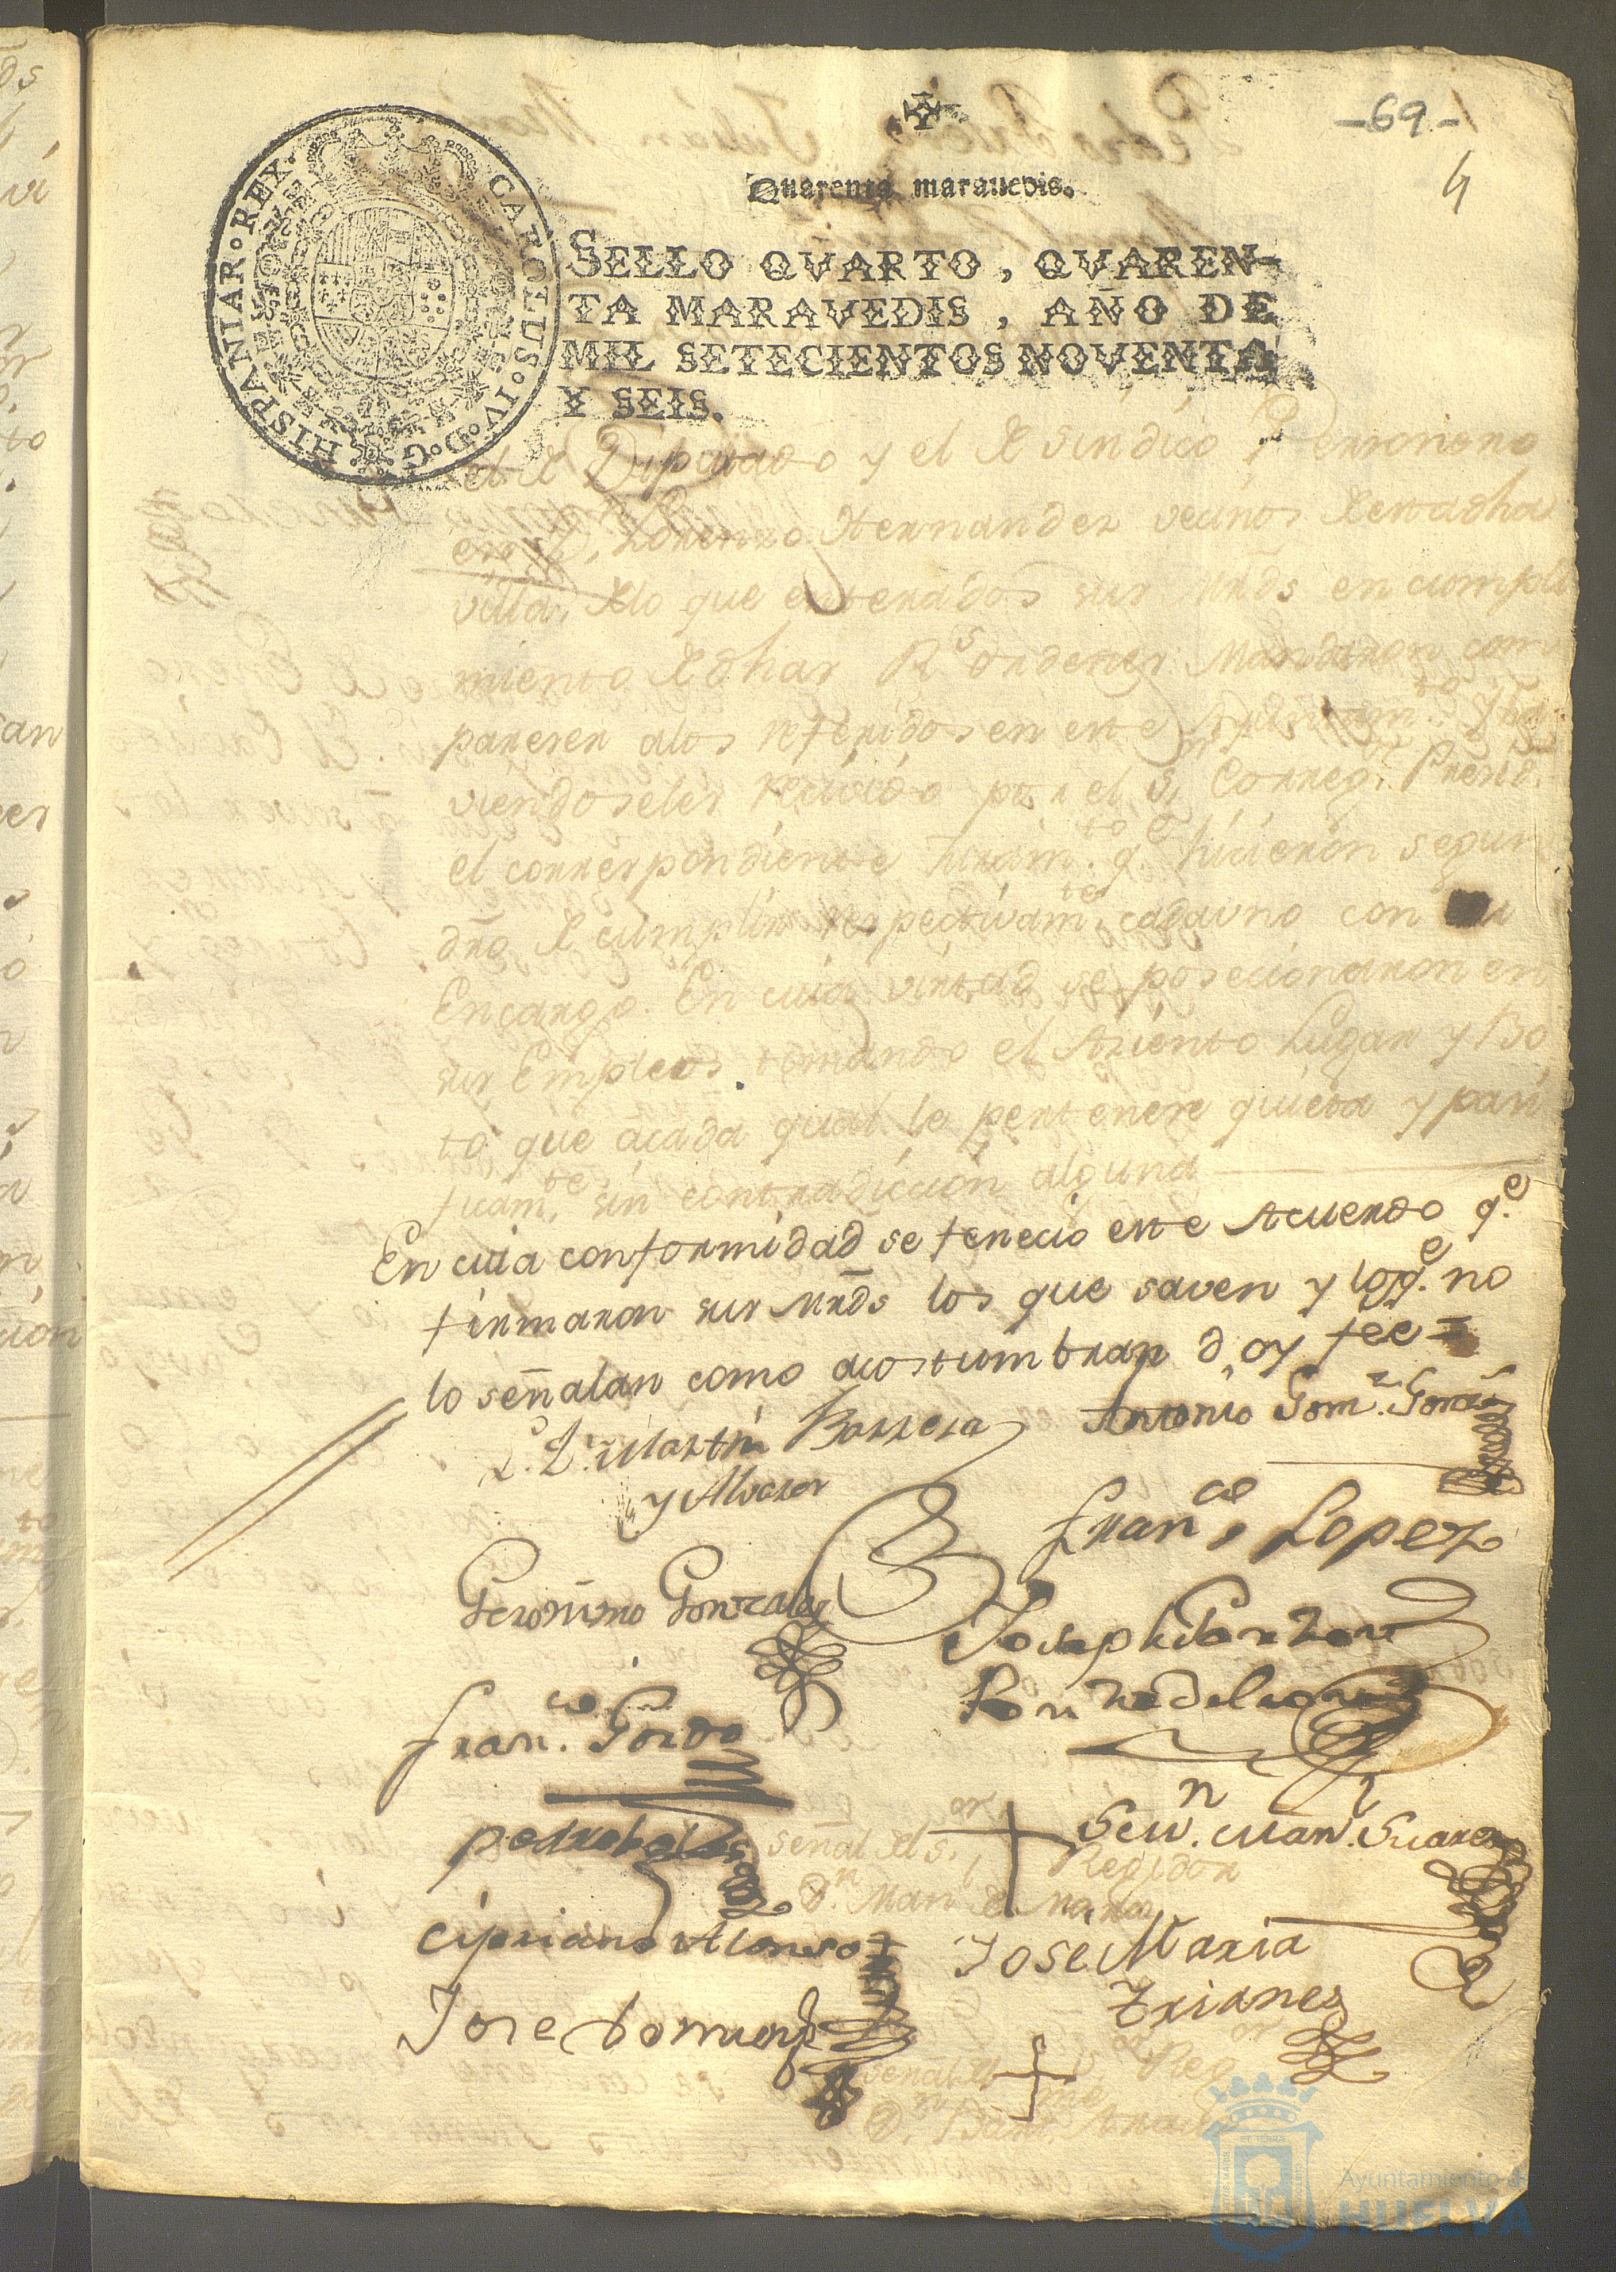 -69-
4
Quarenta marauedis.
CAROLUS·IV·D·G·HISPANIAR·REX·
SELLO QVARTO, QVAREN-
TA MARAVEDIS, AÑO DE
MIL SETECIENTOS NOVENTA
Y SEIS.
Diputado y el Sindico Perronero
Lorenzo Hernandez vecinos
villa, que enterados sus mrds en cumpli
miento Rs ordenes Mandaron com
parecer alos referidos en este Aiuntamto. Yha
viendoseles recivido por el Sr Corregr. Presidte
el correspondiente Juramto. qe hicieron segun
dro cumplir respectivamte cadauno con su
Encargo. En cuia virtud se posecionaron en
sus Empleos tomando el Asiento Lugar y Bo
to que acada qual le pertenece quieta y pasi
fuamte, sin contradiccion alguna
En cuia conformidad se fenecio este Acuerdo qe
firmaron sus mrds los que saven y los qe. no
lo señalan como acostumbran doy fee =
Martin Barrera
y Alvarez
Antonio Gomz. Gordo
Franco Lopez
Geronimo Gonzalez
Joseph Garzon
Ponze de leon
Franco. Gordo
señal del Sor
Regidor
Dn. Manl de
Juan Suarez
Cipriano Alonso
Jose Maria
Trianes
Jose Dominguez
señal del Sor Regor
Dn. Barme.
Ayuntamiento de
HUELVA